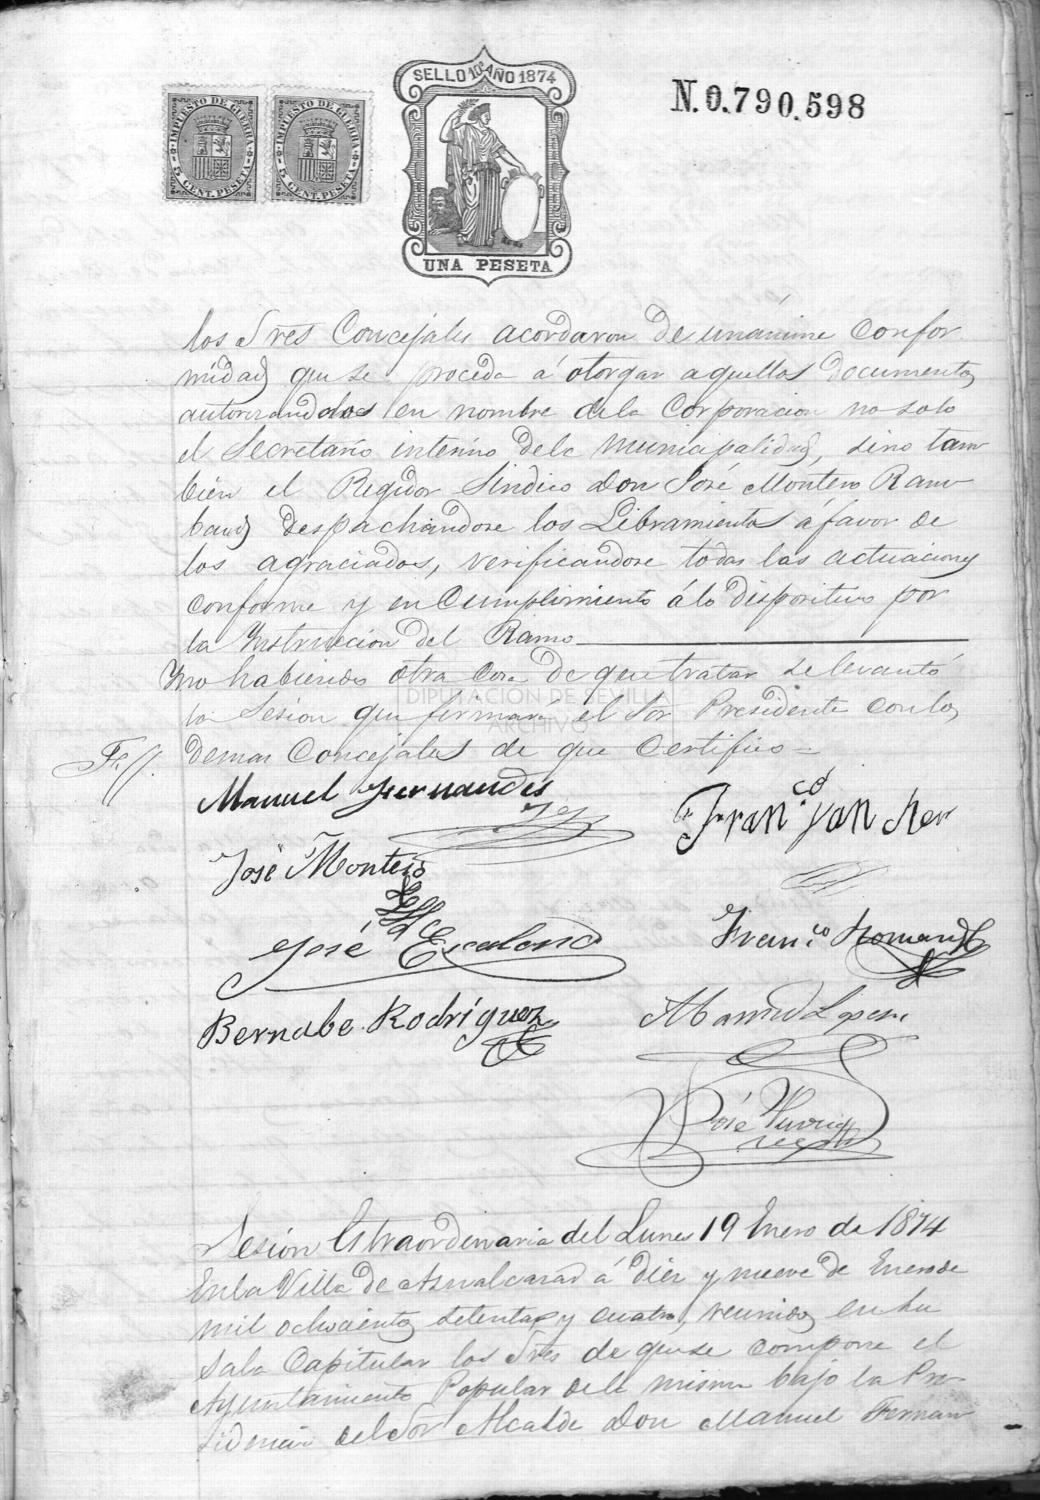 SELLO 10º AÑO 1874
N. 0.790.598
IMPUESTO DE GUERRA
5 CENT. PESETA
IMPUESTO DE GUERRA
5 CENT. PESETA
UNA PESETA
los Sres Concejales acordaron de unánime confor
midad que se proceda á otorgar aquellos documentos
autorizandolos en nombre de la Corporacion no solo
el Secretario interino dela Municipalidad, sino tam
bien el Regidor Sindico Don José Montero Ram
baud despachandose los Libramientos á favor de
los agraciados, verificandose todas las actuaciones
conforme y en Cumplimiento á lo dispositivo por
la Instruccion del Ramo
Y no habiendo otra cosa de que tratar se levantó
la Sesion que firmará el Sor Presidente con los
demas Concejales de que Certifico
DIPUTACIÓN DE SEVILLA
ARCHIVO
Manuel Fernandes
Franco
José Montero
José Escalona
Franco
Bernabe Rodríguez
Manuel
José
Sesion Estraordinaria del Lunes 19 Enero de 1874
En la Villa de Aznalcazar á diez y nueve de Enero de
mil ochocientos setenta y cuatro, reunidos en su
Sala Capitular los Sres de que se compone el
Ayuntamiento Popular dela misma bajo la Pre
sidencia del Sor Alcalde Don Manuel Fernan